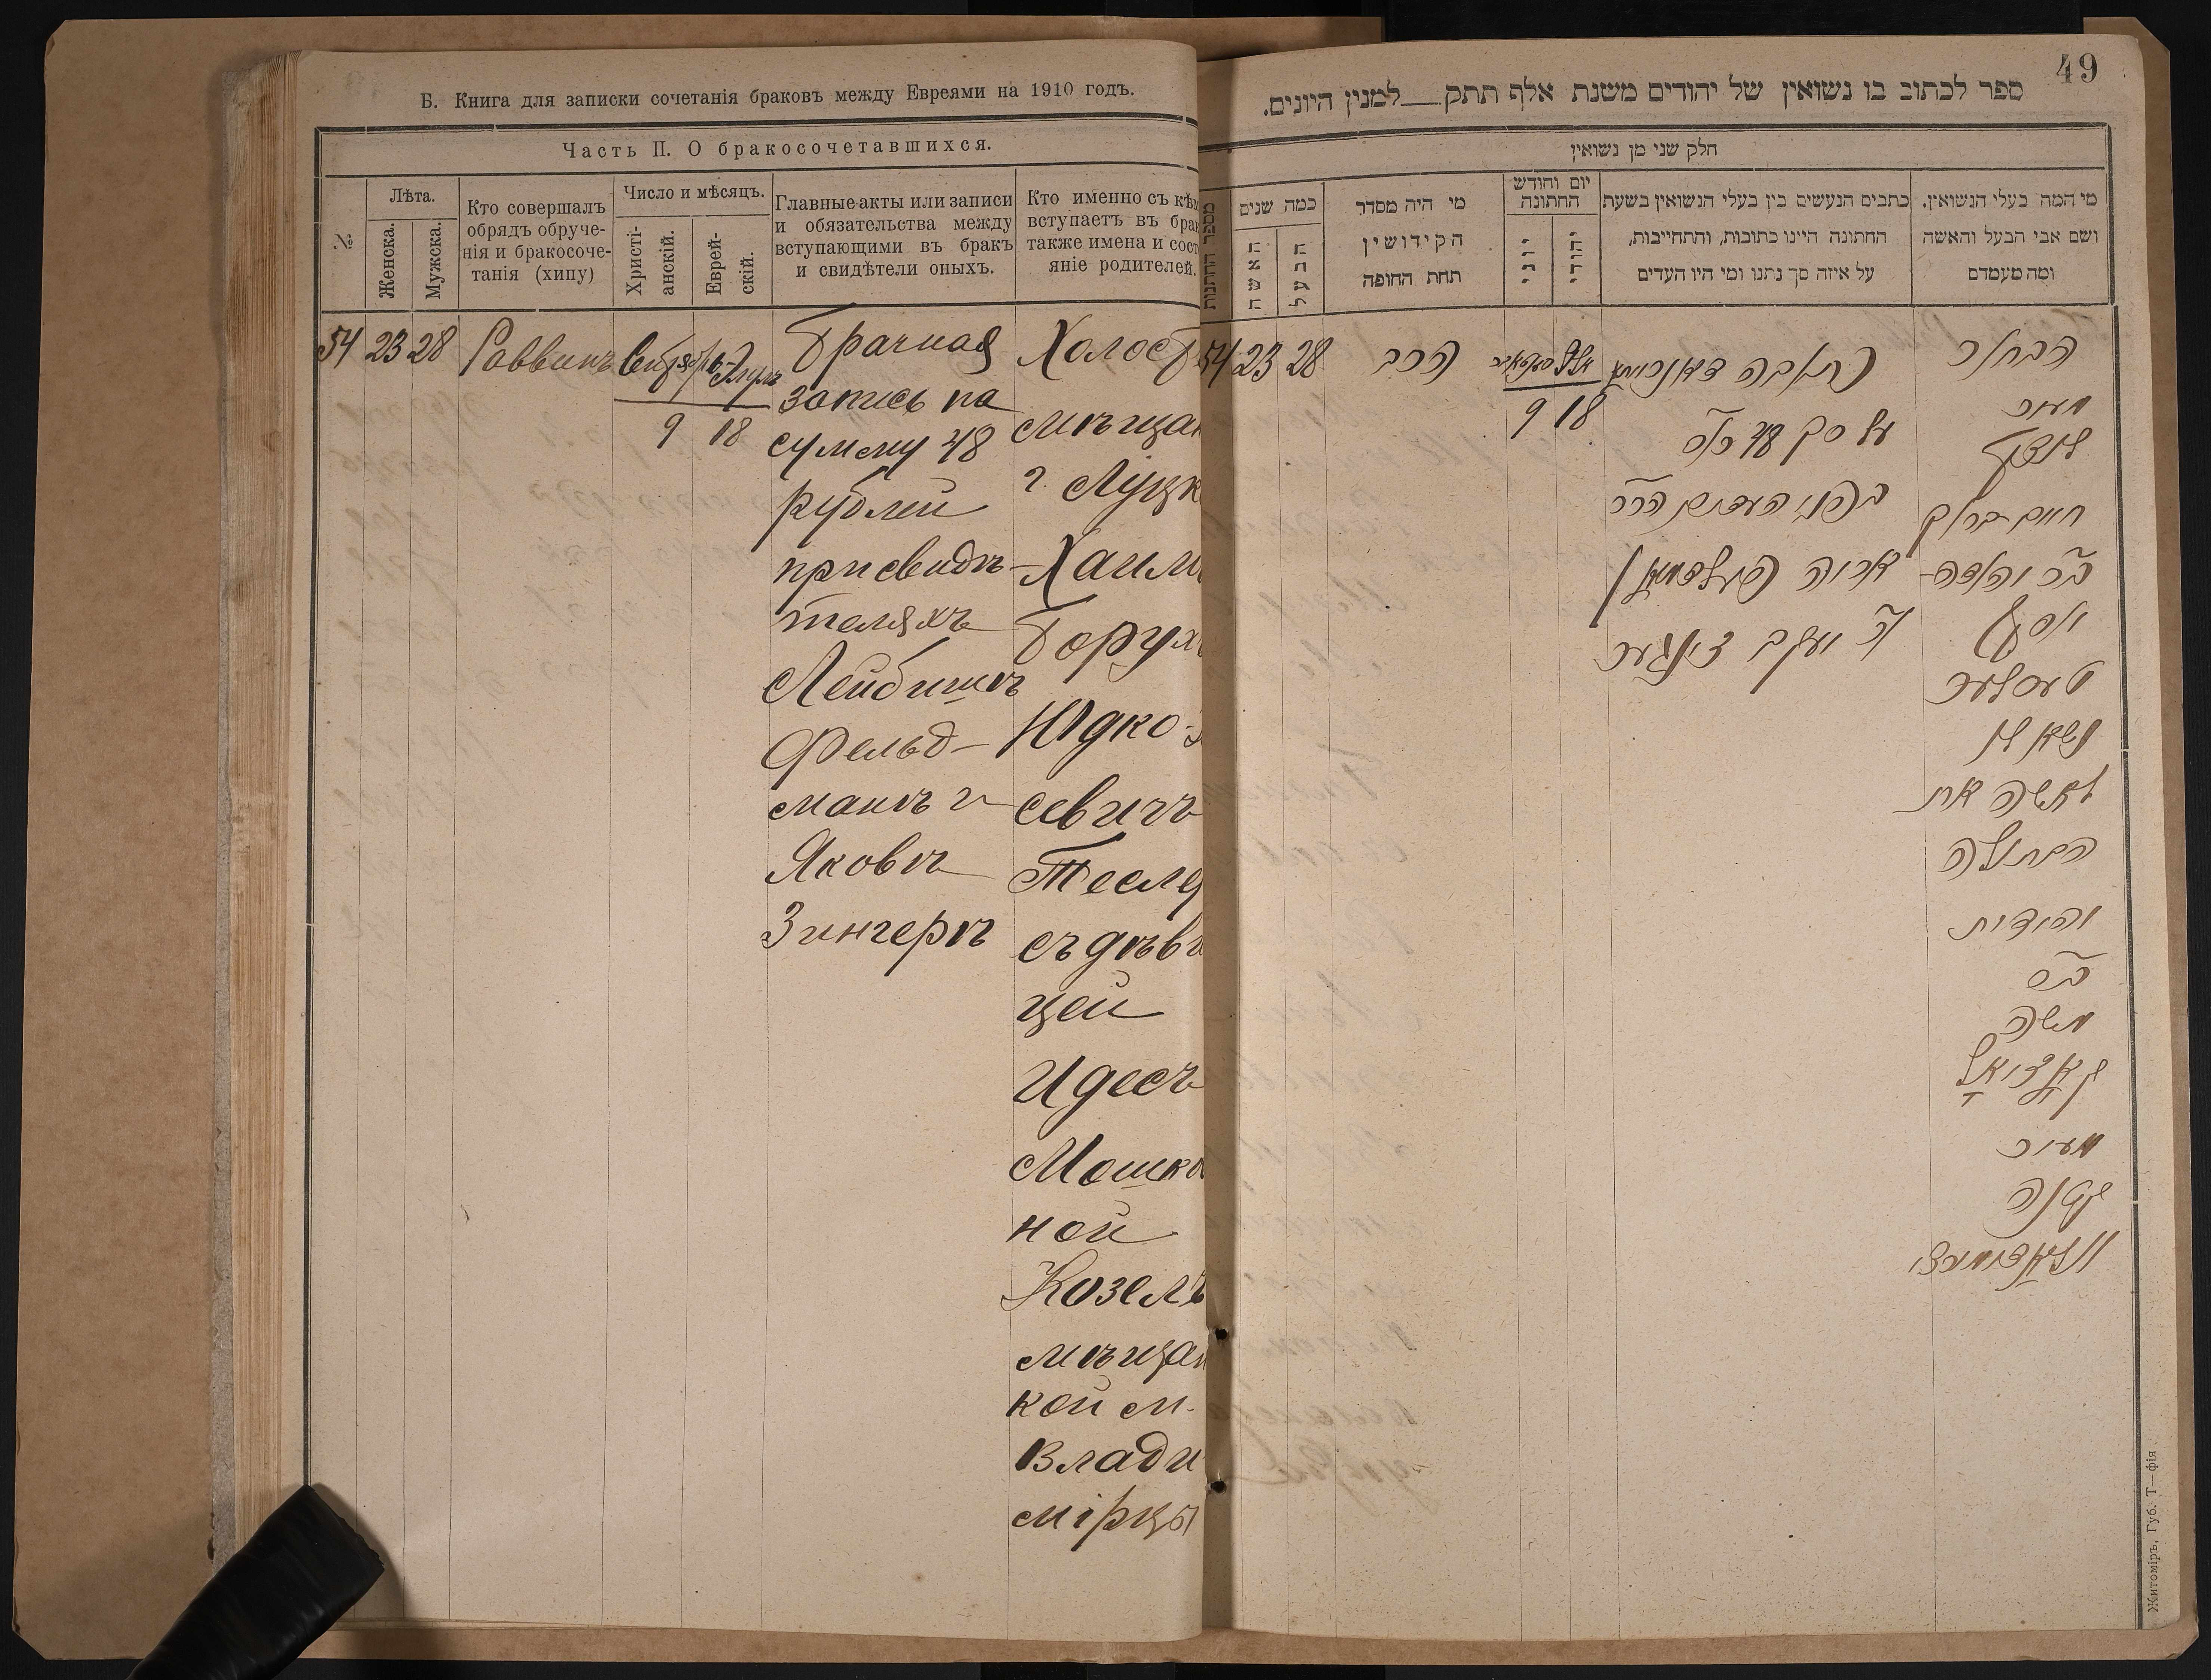 Б. Книга для записки сочетанія браковъ между Евреями на 1910 годъ.
Часть II. О бракосочетавшихся.
№
Лѣта.
Женска.
Мужска.
Кто совершалъ
обрядъ обруче-
нія и бракосоче-
танія (хипу)
Число и мѣсяцъ.
Христі-
анскій.
Еврей-
скій.
Главные акты или записи
и обязательства между
вступающими въ бракъ
и свидѣтели оныхъ.
Кто именно съ кѣм
вступаетъ въ бра
также имена и сос
яніе родителей.
54 23 28 Раввинъ
Элулъ
9 18
Брачная
запись на
сумму 48
рублей
при свидѣ-
теляхъ
Лейбишъ
Фельд-
манъ и
Яковъ
Зингеръ
Холост
мѣщан
г. Луцк
Хаимъ
Борухъ
Юдко-
севичъ
Тесле
съ дѣви
цей
Идесъ
Мошко
ной
Козелъ
мѣщан
кой м.
Влади
мірцы
49
ספר לכתוב בו נשואין של יהודים משנת אלף תתק למנין היונים.
חלק שני מן נשואין
מספר החתונות
כמה שנים
האשה
הבעל
מי היה מסדר
הקידושין
תחת החופה
יום וחודש
החתונה
יוני
יהודי
כתבים הנעשים בין בעלי הנשואין בשעת
החתונה היינו כתובות, והתחייבות,
על איזה סך נתנו ומי היו העדים
מי המה בעלי הנשואין,
ושם אבי הבעל והאשה
ומה מעמדם
54 23 28 הרב
9 18
על סך 48
בפני העדים
יעקב זינגער
הבחור
מעיר
לוצק
חיים ברוך
יוסף
טעסלער
נשא לו
לאשה את
הבתולה
יהודית
משה
מעיר
Житоміръ, Губ. Т—фія